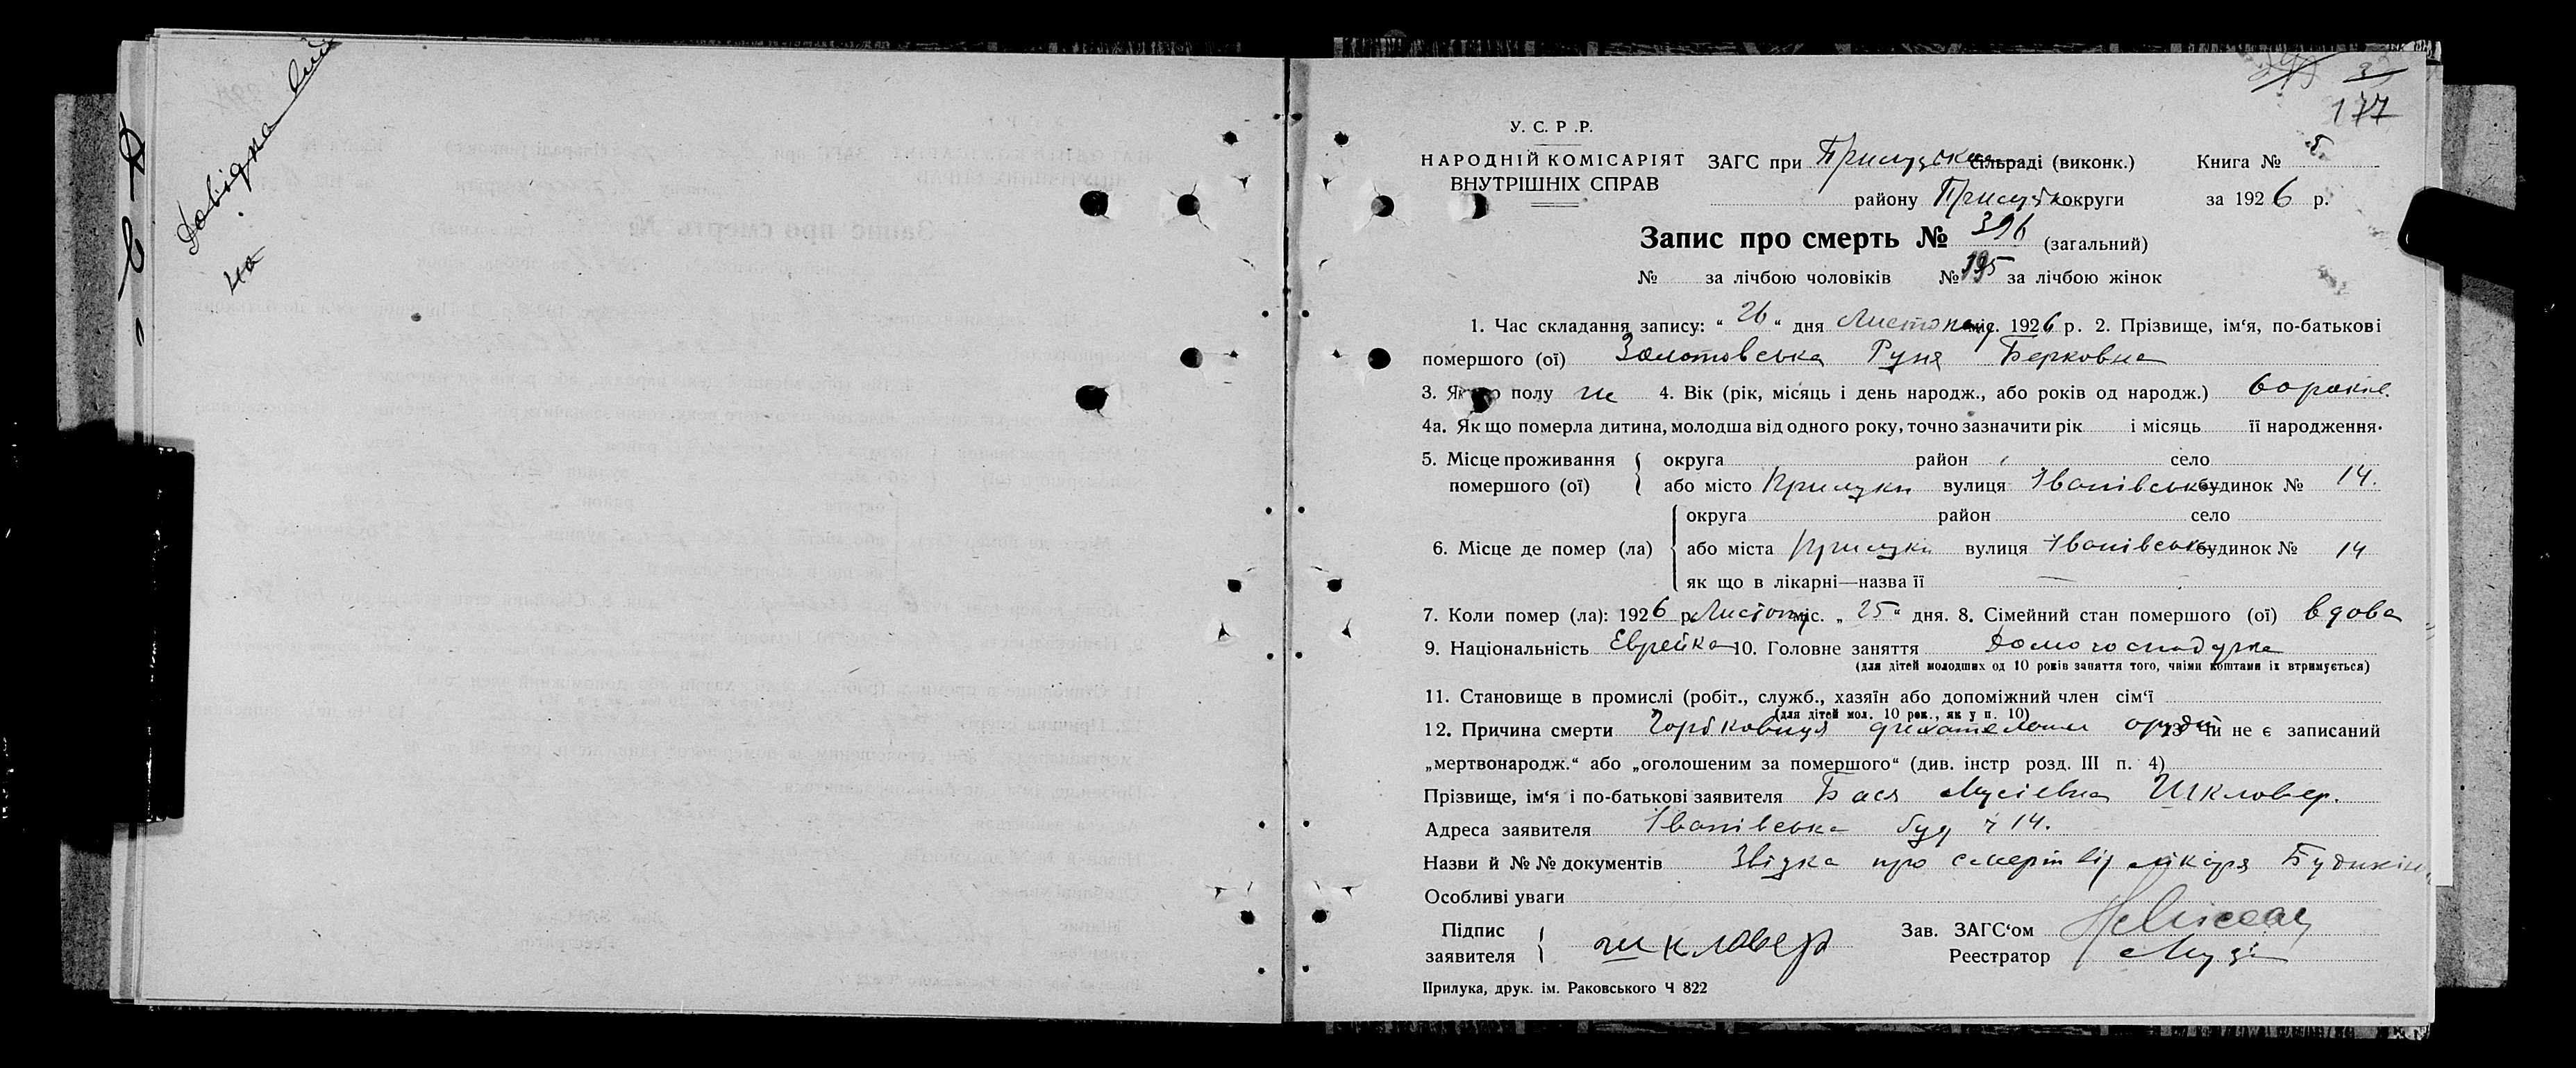 Довідка
на
177
У. С. Р .Р.
НАРОДНІЙ КОМІСАРІЯТ
ВНУТРІШНІХ СПРАВ
ЗАГС при Прилуцькой сільраді (виконк.) Книга № 5
району Прилуцьк округи за 1926 р.
Запис про смерть № 396 (загальний)
№ за лічбою чоловіків № 195 за лічбою жінок
1. Час складання запису: “ 26 “ дня Листопаду міс. 1926 р. 2. Прізвище, ім‘я, по-батькові
помершого (ої) Золотовська Руня Берковна
3. Якого полу ж 4. Вік (рік, місяць і день народж., або років од народж.) 60 років.
4а. Як що померла дитина, молодша від одного року, точно зазначити рік і місяць її народження.
5. Місце проживання помершого (ої) { округа район село
або місто Прилуки вулиця Іванівська будинок № 14.
6. Місце де помер (ла) { округа район село
або міста Прилуки вулиця Іванівська будинок № 14
як що в лікарні—назва її —
7. Коли помер (ла): 1926 р. Листопад міс. „ 25 “ дня. 8. Сімейний стан помершого (ої) вдова
9. Національність Еврейка 10. Головне заняття Домогосподурка
(для дітей молодших од 10 років заняття того, чиїми коштами їх втримується)
11. Становище в промислі (робіт., служб., хазяїн або допоміжний член сім‘ї
(для дітей мол. 10 рок., як у п. 10)
12. Причина смерти 13 Чи не є записаний
„мертвонародж.“ або „оголошеним за помершого“ (див. інстр розд. III п. 4)
Прізвище, ім‘я і по-батькові заявителя Бася Мусіевна Шкловер.
Адреса заявителя Іванівська буд ч 14.
Назви й № № документів Звідка про смерть від лікаря
Особливі уваги
Підпис заявителя { шкловер
Зав. ЗАГС‘ом
Реестратор
Прилука, друк. ім. Раковського Ч 822